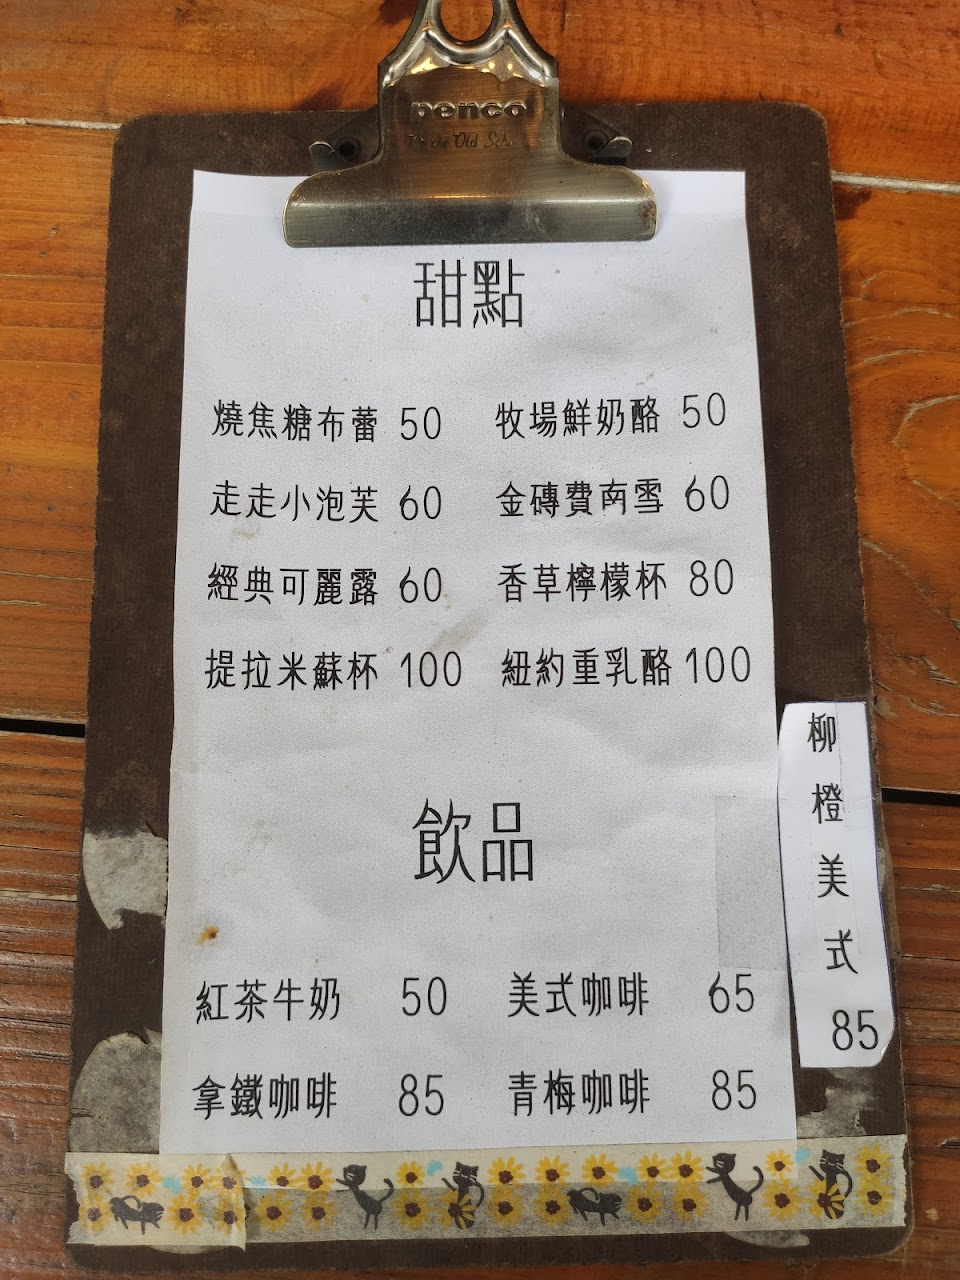 penco
Old
甜點
燒焦糖布蕾 50 牧場鮮奶酪 50
走走小泡芙 60 金磚費南雪 60
經典可麗露 60 香草檸檬杯 80
提拉米蘇杯 100 紐約重乳酪 100
飲品
紅茶牛奶 50 美式咖啡 65
拿鐵咖啡 85 青梅咖啡 85
柳橙美式 85